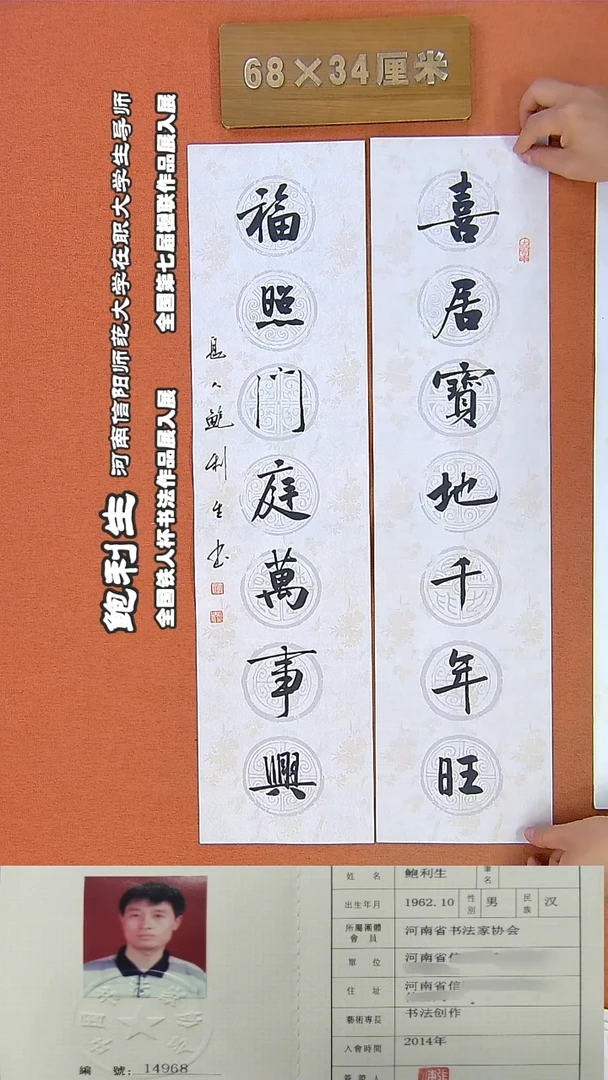 68×34厘米
喜居寶地千年旺
福照門庭萬事興
息人鲍利生书
鲍利生 河南信阳师范大学在职大学生导师
全国铁人杯书法作品展入展 全国第七届楹联作品展入展
姓 名 鲍利生 筆名
出生年月 1962.10 性別 男 民族 汉
所屬團體會員 河南省书法家协会
單 位 河南省信
住 址 河南省信
藝術專長 书法创作
入會時間 2014年
簽證人
編 號: 14968